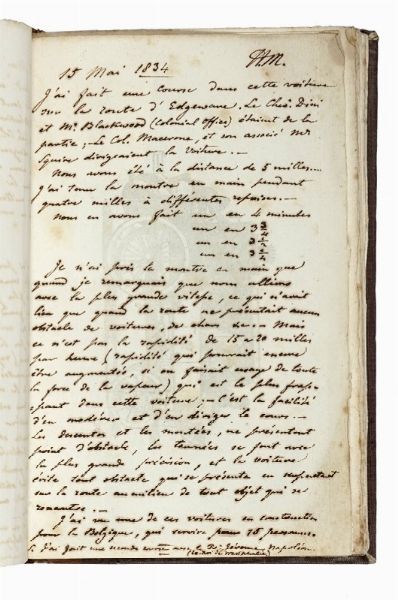 15 Mai 1834
J'ai fait une course dans cette voiture
sur la route d'Edgeware. Le Chev. Dini
et Mr Blackwood (Colonial Office) étaient de la
partie; Le Col. Macerone, et son associé Mr
Squire dirigeaient la voiture. —
Nous avons été à la distance de 5 milles...
J'ai tenu la montre en main pendant
quatre milles à différentes reprises. —
Nous en avons fait un en 4 minutes
un en 3 3/4
un en 3 1/2
un en 3 1/4
Je n'ai pris la montre en main que
quand je remarquais que nous allions
avec la plus grande vitesse, ce qui n'avait
lieu que quand la route ne présentait aucun
obstacle de voitures, de chars &c. — Mais
ce n'est pas la rapidité de 15 a 20 milles
par heure (rapidité qui pouvait encore
être augmentée, si on faisait usage de toute
la force de la vapeur) qui est la plus frap-
pant dans cette voiture; c'est la facilité
d'en modérer et d'en diriger le cours. —
Les descentes et les montées, ne présentent
point d'obstacle, les tournées se font avec
la plus grande précision, et la voiture
évite tout obstacle qui se présente en
sur la route au milieu de tout objet qui se
rencontre. —
J'ai vu une de ces voitures en construction
pour la Belgique, qui servira pour 16 personnes.
J'ai fait une seconde course avec le Pce Jérome Napoléon
(ex-Roi de Westphalie)